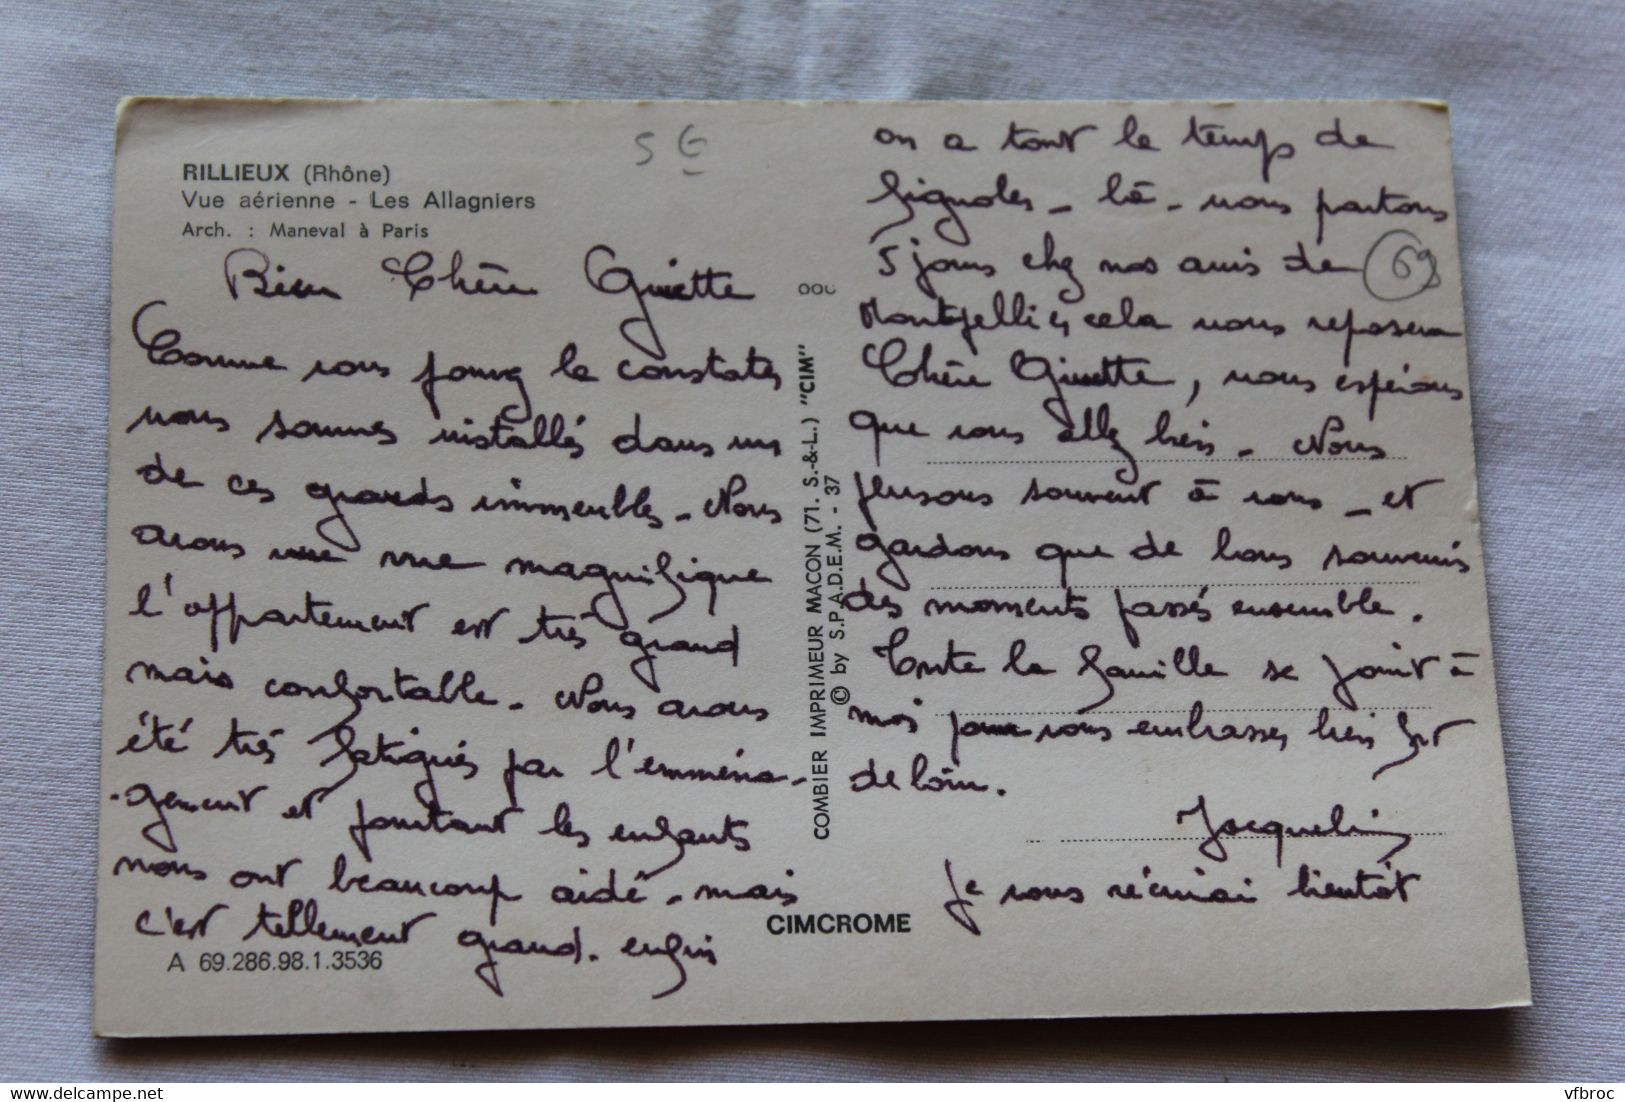 5 €
RILLIEUX (Rhône)
Vue aérienne - Les Allagniers
Arch. : Maneval à Paris
Bien Chère Ginette
Comme vous pouvez le constater
nous sommes installés dans un
de ces grands immeubles - Nous
avons une vue magnifique
l'appartement est très grand
mais confortable - Nous avons
été très fatigués par l'emména-
-gement et pourtant les enfants
nous ont beaucoup aidé - mais
c'est tellement grand. enfin
A 69.286.98.1.3536
COMBIER IMPRIMEUR MACON (71. S.-&-L.) "CIM"
© by S.P.A.D.E.M. - 37
CIMCROME
on a tout le temps de
fignoler - là - nous partons
5 jours chez nos amis de
69
Montpellier cela nous reposera
Chère Ginette, nous espérons
que vous allez bien - Nous
pensons souvent à vous - et
gardons que de bons souvenirs
des moments passés ensemble.
Toute la famille se joint à
moi pour vous embrasser bien fort
de loin.
Jacqueline
Je vous récrirai bientôt
vfbroc